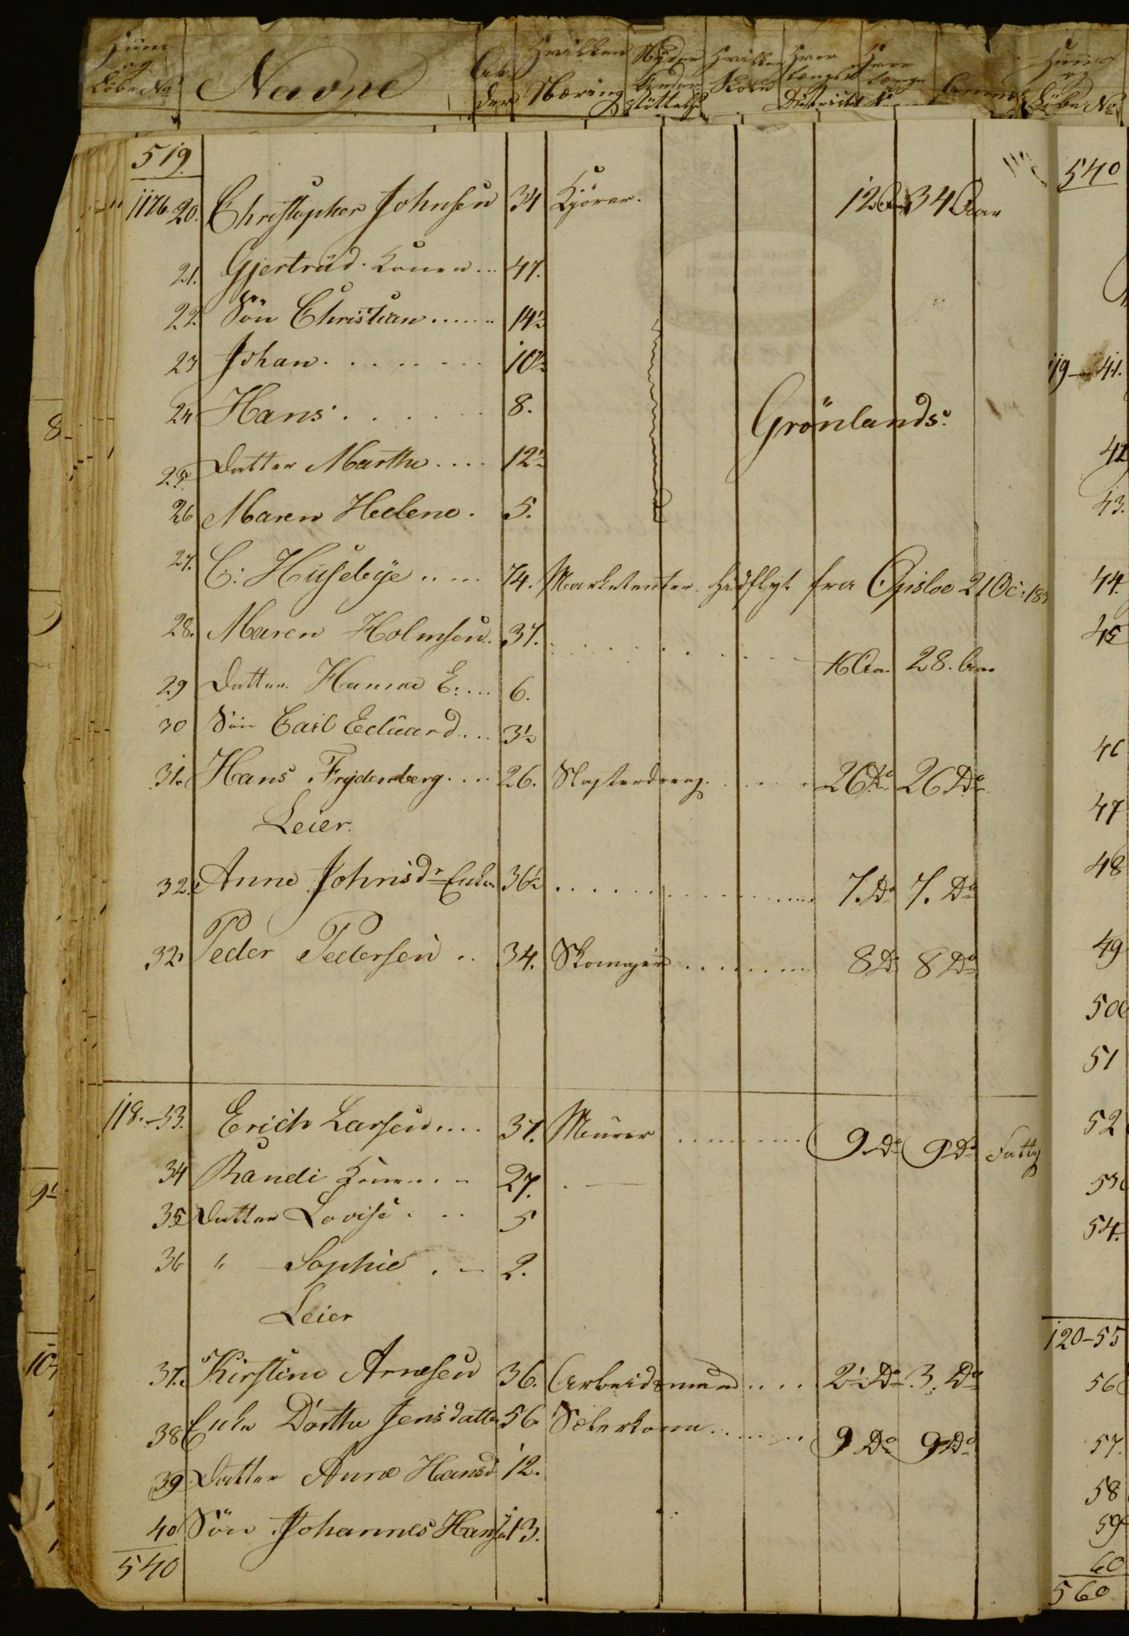 Huus og Løbe No Navne Alder Hvilken Næring Hvor længe District Huus Løbe No
519. 540
117b. 20. Christopher Johnsen 34 Kjører. 12 Do 34 Aar
21. Gjertrud Konen .. 47.
22 Søn Christian ...... 14½
23 Johan ........ 10½
24 Hans ...... 8.
Grønlands.
25. Datter Marthe .... 12½
26 Maren Helene . 5.
27. C: Husebye ..... 74. Marketenter fra Opsloe 21 Oc: 183
28. Maren Holmsen. 37. 16 Aar 28. Aar
29 Datter Hanna E: ... 6.
30 Søn Carl Eduard ... 3½
31. Hans Frydenberg .... 26. Slagterdreng. 26 Do 26 Do
Leier.
32. Anne Johnsdr Enke 36½ 7. Do 7. Do
32. Peder Pedersen .. 34. Skomager ....... 8 Do 8 Do
118. - 33. Erich Larsen .... 37. Murer ........ 9 Do 9 Do Fattig
34 Randi Konen .. 27.
35 Datter Lovise . . . 5
36 " - Sophie . - 2.
Leier
37. Kirstine Arnesen 36. Arbeidsmand .... 2½ Do 3. Do
38 Enke Dorthe Jensdatter 56 9 Do 9 Do
39 Datter Anne Hansd 12.
40 Søn Johannes Hans 13.
540
8
10
119 - 41.
42
43.
44.
45
46
47
48
49
50
51
52
53
54.
120 - 55
56
57.
58
59
60
560